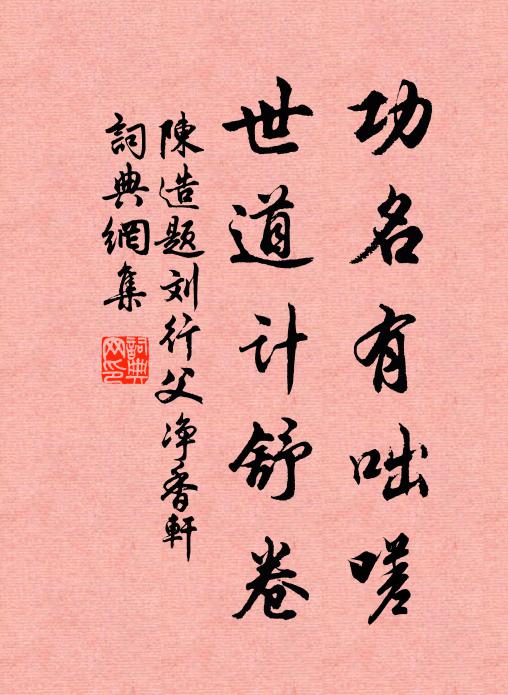 功名有咄嗟
世道计舒卷
陳造题刘行父净香軒
詞典網集
詞典网印